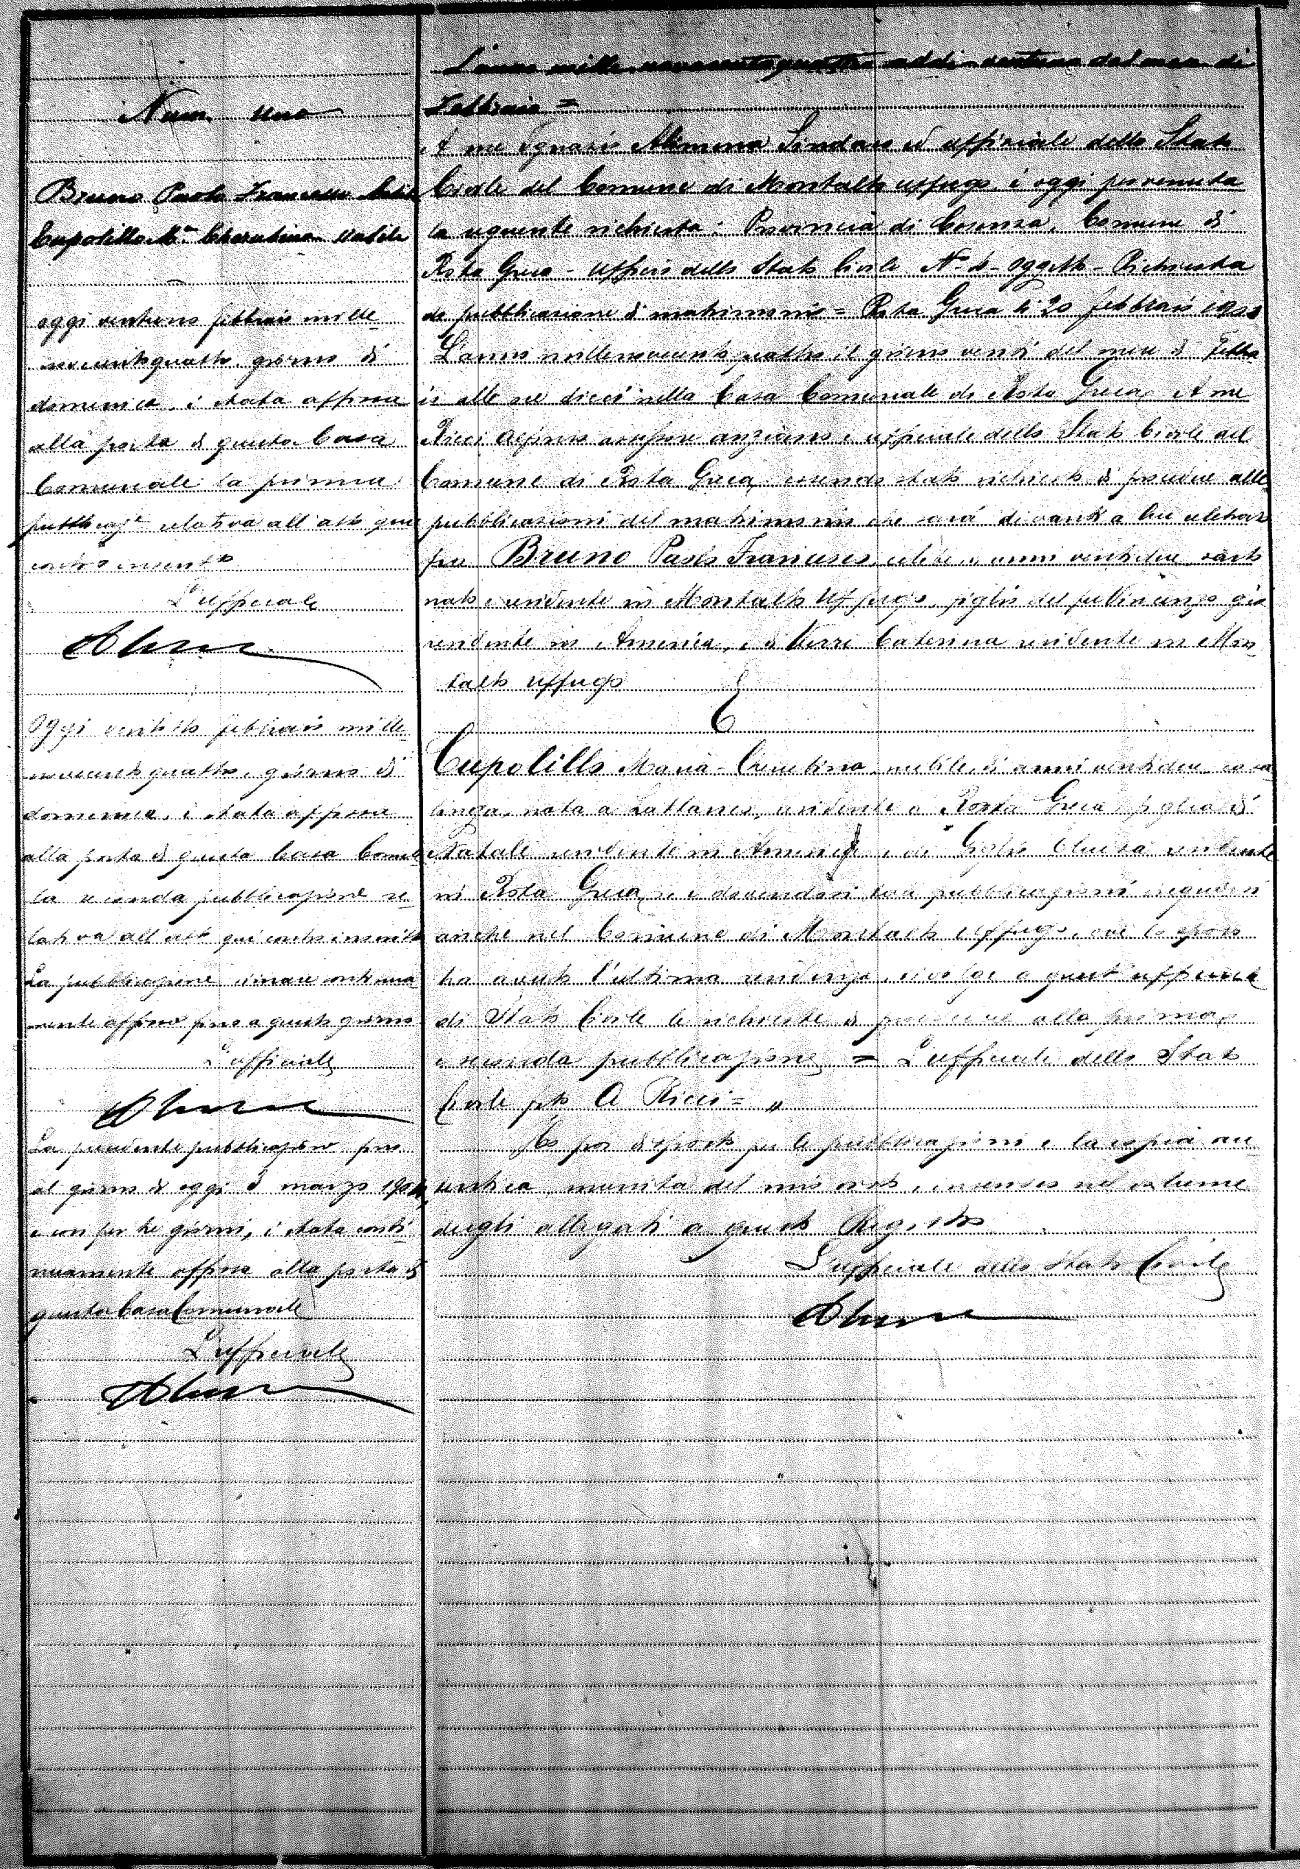 Num. uno
Bruno Paolo Francesco celibe
Cupolillo M.a Cherubina nubile
Oggi ventuno febbraio mille
novecentoquattro, giorno di
domenica, è stata affissa
alla porta di questa Casa
Comunale la prima
pubblicaz.e relativa all'atto qui
contro inserito
L'uffiziale
Oggi ventotto febbraio mille
novecentoquattro, giorno di
domenica, è stata affissa
alla porta di questa Casa Comle
la seconda pubblicazione re
lativa all'atto qui contro inserito
La pubblicazione rimane continua
mente affissa fino a questo giorno
L'uffiziale
La presente pubblicazione fino
al giorno di oggi 3 marzo 1904,
e così per tre giorni, è stata conti
nuamente affissa alla porta di
questa Casa Comunale
L'uffiziale
L'anno mille novecentoquattro addì ventuno del mese di
Febbraio =
A me Ignazio Alimena Sindaco ed uffiziale dello Stato
Civile del Comune di Montalto Uffugo è oggi pervenuta
la seguente richiesta: Provincia di Cosenza, Comune di
Rota Greca - Uffizio dello Stato Civile N. - Oggetto - Richiesta
di pubblicazione di matrimonio = Rota Greca li 20 febbraio
L'anno millenovecento quattro il giorno venti del mese di Febbra
io alle ore dieci nella Casa Comunale di Rota Greca. A me
Ricci Alfonso assessore anziano e uffiziale dello Stato Civile del
Comune di Rota Greca, essendo stato richiesto di procedere alle
pubblicazioni del matrimonio che sarà divanti a lui celebrar
fra Bruno Paolo Francesco, celibe, di anni ventidue, sarto
nato e residente in Montalto Uffugo, figlio del fu Vincenzo già
residente in America, e di Caterina residente in Mon
talto Uffugo
E
Cupolillo Maria Cherubina, nubile, di anni ventidue, casa
linga, nata a Lattarico, residente a Rota Greca, figlia di
Natale residente in America e di residente
in Rota Greca, e dovendosi tali pubblicazioni eseguirsi
anche nel Comune di Montalto Uffugo, ove lo sposo
ha avuto l'ultima residenza, rivolge a quest'uffiziale
di Stato Civile le richieste di procedere alla prima
e seconda pubblicazione = L'uffiziale dello Stato
Civile fto A Ricci = "
Ho poi disposto per le pubblicazioni e la copia au
tentica, munita del mio visto, è inserito nel volume
degli allegati a questo Registro
L'uffiziale dello Stato Civile